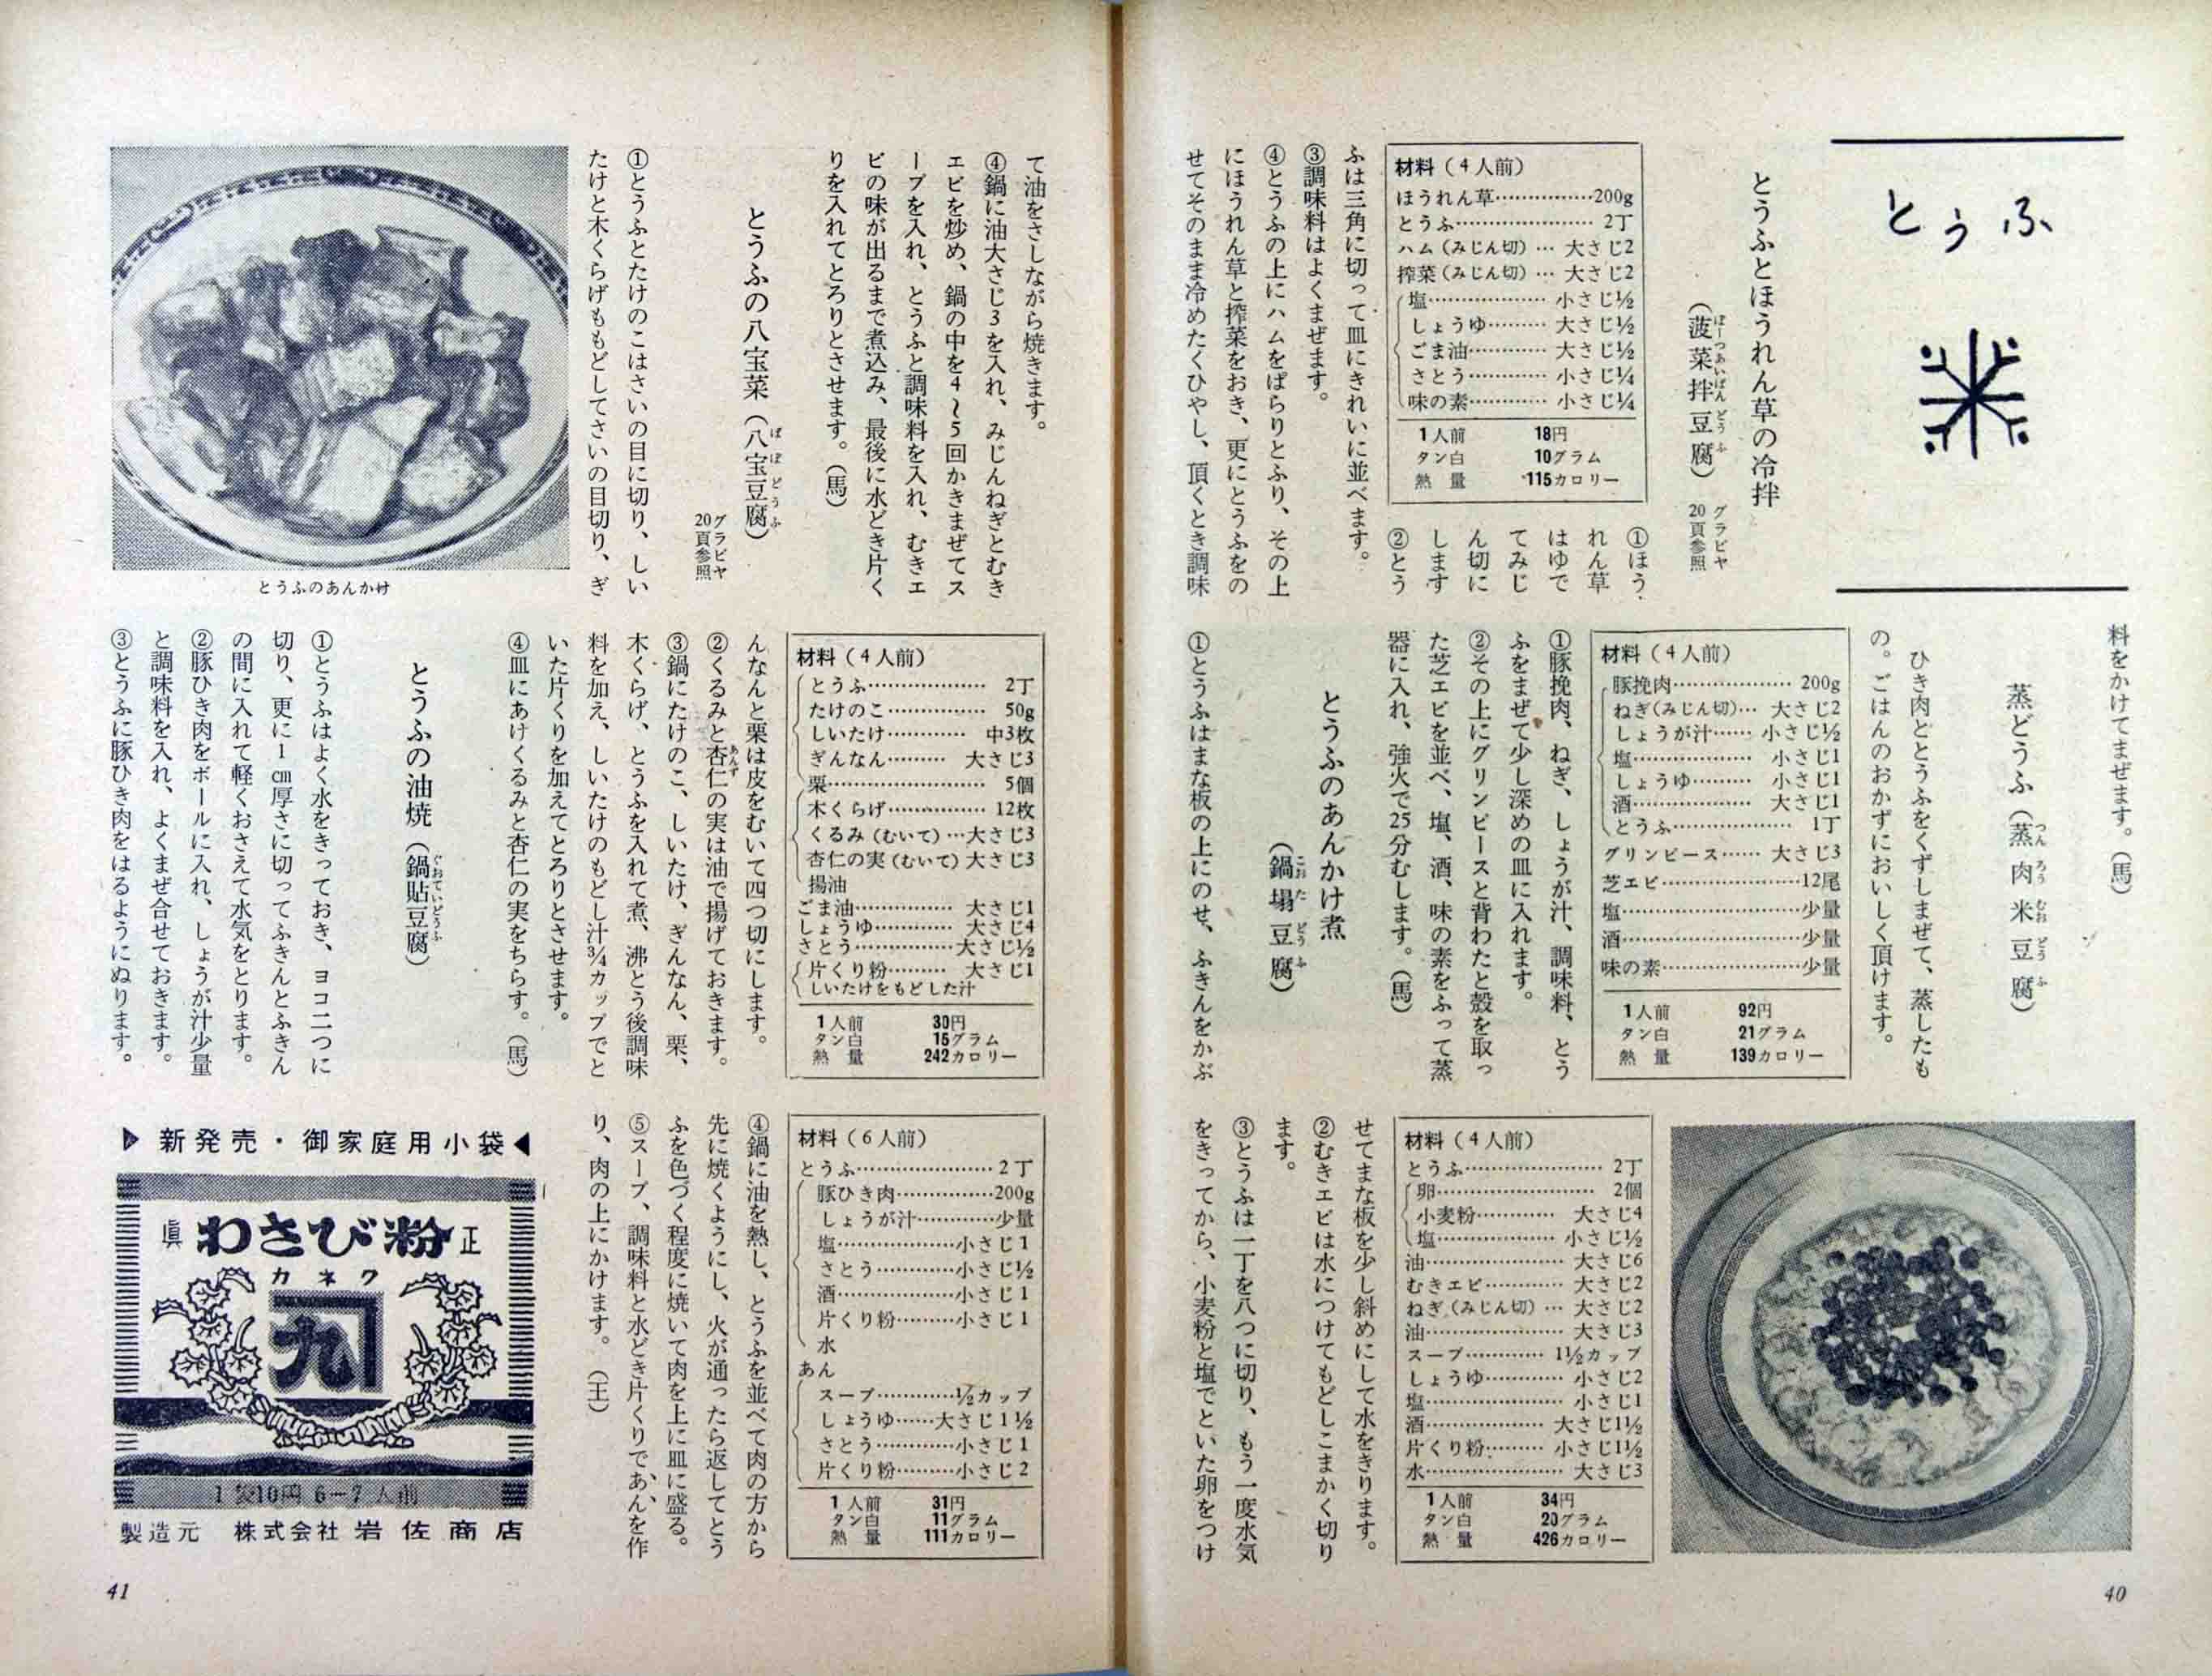 とうふ
とうふとほうれん草の冷拌
（菠菜拌豆腐）
ぼーつあいばんどうふ
グラビヤ
20頁参照
材料（4人前）
ほうれん草……………200g
とうふ…………………2丁
ハム（みじん切）…大さじ2
搾菜（みじん切）…大さじ2
塩………………小さじ½
しょうゆ………大さじ½
ごま油…………大さじ½
さとう…………小さじ¼
味の素…………小さじ¼
1人前　18円
タン白　10グラム
熱量　115カロリー
①ほう
れん草
はゆで
てみじ
ん切に
します
②とう
ふは三角に切って皿にきれいに並べます。
③調味料はよくまぜます。
④とうふの上にハムをぱらりとふり、その上
にほうれん草と搾菜をおき、更にとうふをの
せてそのまま冷めたくひやし、頂くとき調味
料をかけてまぜます。（馬）
蒸どうふ（蒸肉米豆腐）
つんろうむおどうふ
ひき肉どとうふをくずしまぜて、蒸したも
の。ごはんのおかずにおいしく頂けます。
材料（4人前）
豚挽肉………………200g
ねぎ（みじん切）…大さじ2
しょうが汁……小さじ½
塩…………………小さじ1
しょうゆ………小さじ1
酒………………大さじ1
とうふ………………1丁
グリンピース……大さじ3
芝エビ…………………12尾
塩………………………少量
酒………………………少量
味の素…………………少量
1人前　92円
タン白　21グラム
熱量　139カロリー
①豚挽肉、ねぎ、しょうが汁、調味料、とう
ふをまぜて少し深めの皿に入れます。
②その上にグリンピースと背わたと殻を取っ
た芝エビを並べ、塩、酒、味の素をふって蒸
器に入れ、強火で25分むします。（馬）
とうふのあんかけ煮
（鍋塌豆腐）
こおたどうふ
①とうふはまな板の上にのせ、ふきんをかぶ
材料（4人前）
とうふ…………………2丁
卵……………………2個
小麦粉…………大さじ4
塩………………小さじ½
油…………………大さじ6
むきエビ…………大さじ2
ねぎ（みじん切）…大さじ2
油…………………大さじ3
スープ…………1½カップ
しょうゆ…………小さじ2
塩…………………小さじ1
酒………………大さじ1½
片くり粉………小さじ1½
水…………………大さじ3
1人前　34円
タン白　20グラム
熱量　426カロリー
せてまな板を少し斜めにして水をきります。
②むきエビは水につけてもどしこまかく切り
ます。
③とうふは一丁を八つに切り、もう一度水気
をきってから、小麦粉と塩でといた卵をつけ
40
て油をさしながら焼きます。
④鍋に油大さじ3を入れ、みじんねぎとむき
エビを炒め、鍋の中を4〜5回かきまぜてス
ープを入れ、とうふと調味料を入れ、むきエ
ビの味が出るまで煮込み、最後に水どき片く
りを入れてとろりとさせます。（馬）
とうふの八宝菜（八宝豆腐）
ぱぽどうふ
グラビヤ
20頁参照
①とうふとたけのこはさいの目に切り、しい
たけと木くらげももどしてさいの目切り、ぎ
とうふのあんかけ
材料（4人前）
とうふ………………2丁
たけのこ……………50g
しいたけ…………中3枚
ぎんなん………大さじ3
栗……………………5個
木くらげ……………12枚
くるみ（むいて）…大さじ3
杏仁の実（むいて）大さじ3
揚油
ごま油……………大さじ1
しょうゆ…………大さじ4
さとう……………大さじ½
片くり粉………大さじ1
しいたけをもどした汁
1人前　30円
タン白　15グラム
熱量　242カロリー
んなんと栗は皮をむいて四つ切にします。
②くるみと杏仁の実は油で揚げておきます。
あんず
③鍋にたけのこ、しいたけ、ぎんなん、栗、
木くらげ、とうふを入れて煮、沸とう後調味
料を加え、しいたけのもどし汁¾カップでと
いた片くりを加えてとろりとさせます。
④皿にあけくるみと杏仁の実をちらす。（馬）
とうふの油焼（鍋貼豆腐）
ぐおていどうふ
①とうふはよく水をきっておき、ヨコ二つに
切り、更に1㎝厚さに切ってふきんとふきん
の間に入れて軽くおさえて水気をとります。
②豚ひき肉をボールに入れ、しょうが汁少量
と調味料を入れ、よくまぜ合せておきます。
③とうふに豚ひき肉をはるようにぬります。
材料（6人前）
とうふ…………………2丁
豚ひき肉……………200g
しょうが汁…………少量
塩………………小さじ1
さとう…………小さじ½
酒………………小さじ1
片くり粉………小さじ1
水
あん
スープ…………½カップ
しょうゆ……大さじ1½
さとう…………小さじ1
片くり粉………小さじ2
1人前　31円
タン白　11グラム
熱量　111カロリー
④鍋に油を熱し、とうふを並べて肉の方から
先に焼くようにし、火が通ったら返してとう
ふを色づく程度に焼いて肉を上に皿に盛る。
⑤スープ、調味料と水どき片くりで、あんを作
り、肉の上にかけます。（王）
新発売・御家庭用小袋
眞 わさび粉 正
カネク
九
1袋10円 6−7人前
製造元　株式会社 岩佐商店
41